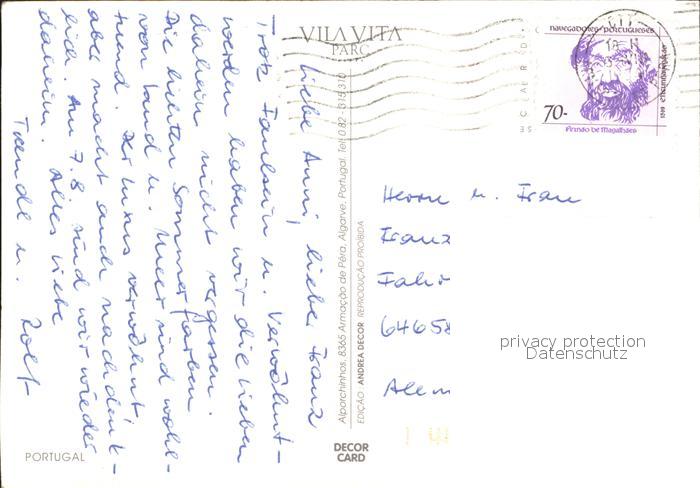 VILA VITA
PARC
Liebe Anni, lieber Franz
Trotz Faulsein u. Verwöhnt-
werden haben wir die Lieben
daheim nicht vergessen.
Die bunten Sommerfarben
von Land u. Meer sind wohl-
tuend. Der Luxus verwöhnt,
aber macht auch nachdenk-
lich. Am 7.8. sind wir wieder
daheim. Alles Liebe
Traudl u. Rolf
Alporchinhos, 8365 Armação de Pêra, Algarve, Portugal, Tel. 082 - 315310
EDIÇÃO: ANDREA DECOR REPRODUÇÃO PROIBIDA
DECOR
CARD
PORTUGAL
navegadores portugueses
70-
Fernão de Magalhães
Herrn u. Frau
Franz
Fahr
64658
Alem
privacy protection
Datenschutz